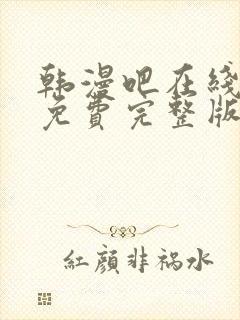 韩漫吧在线
免費完整版
紅顏非祸水